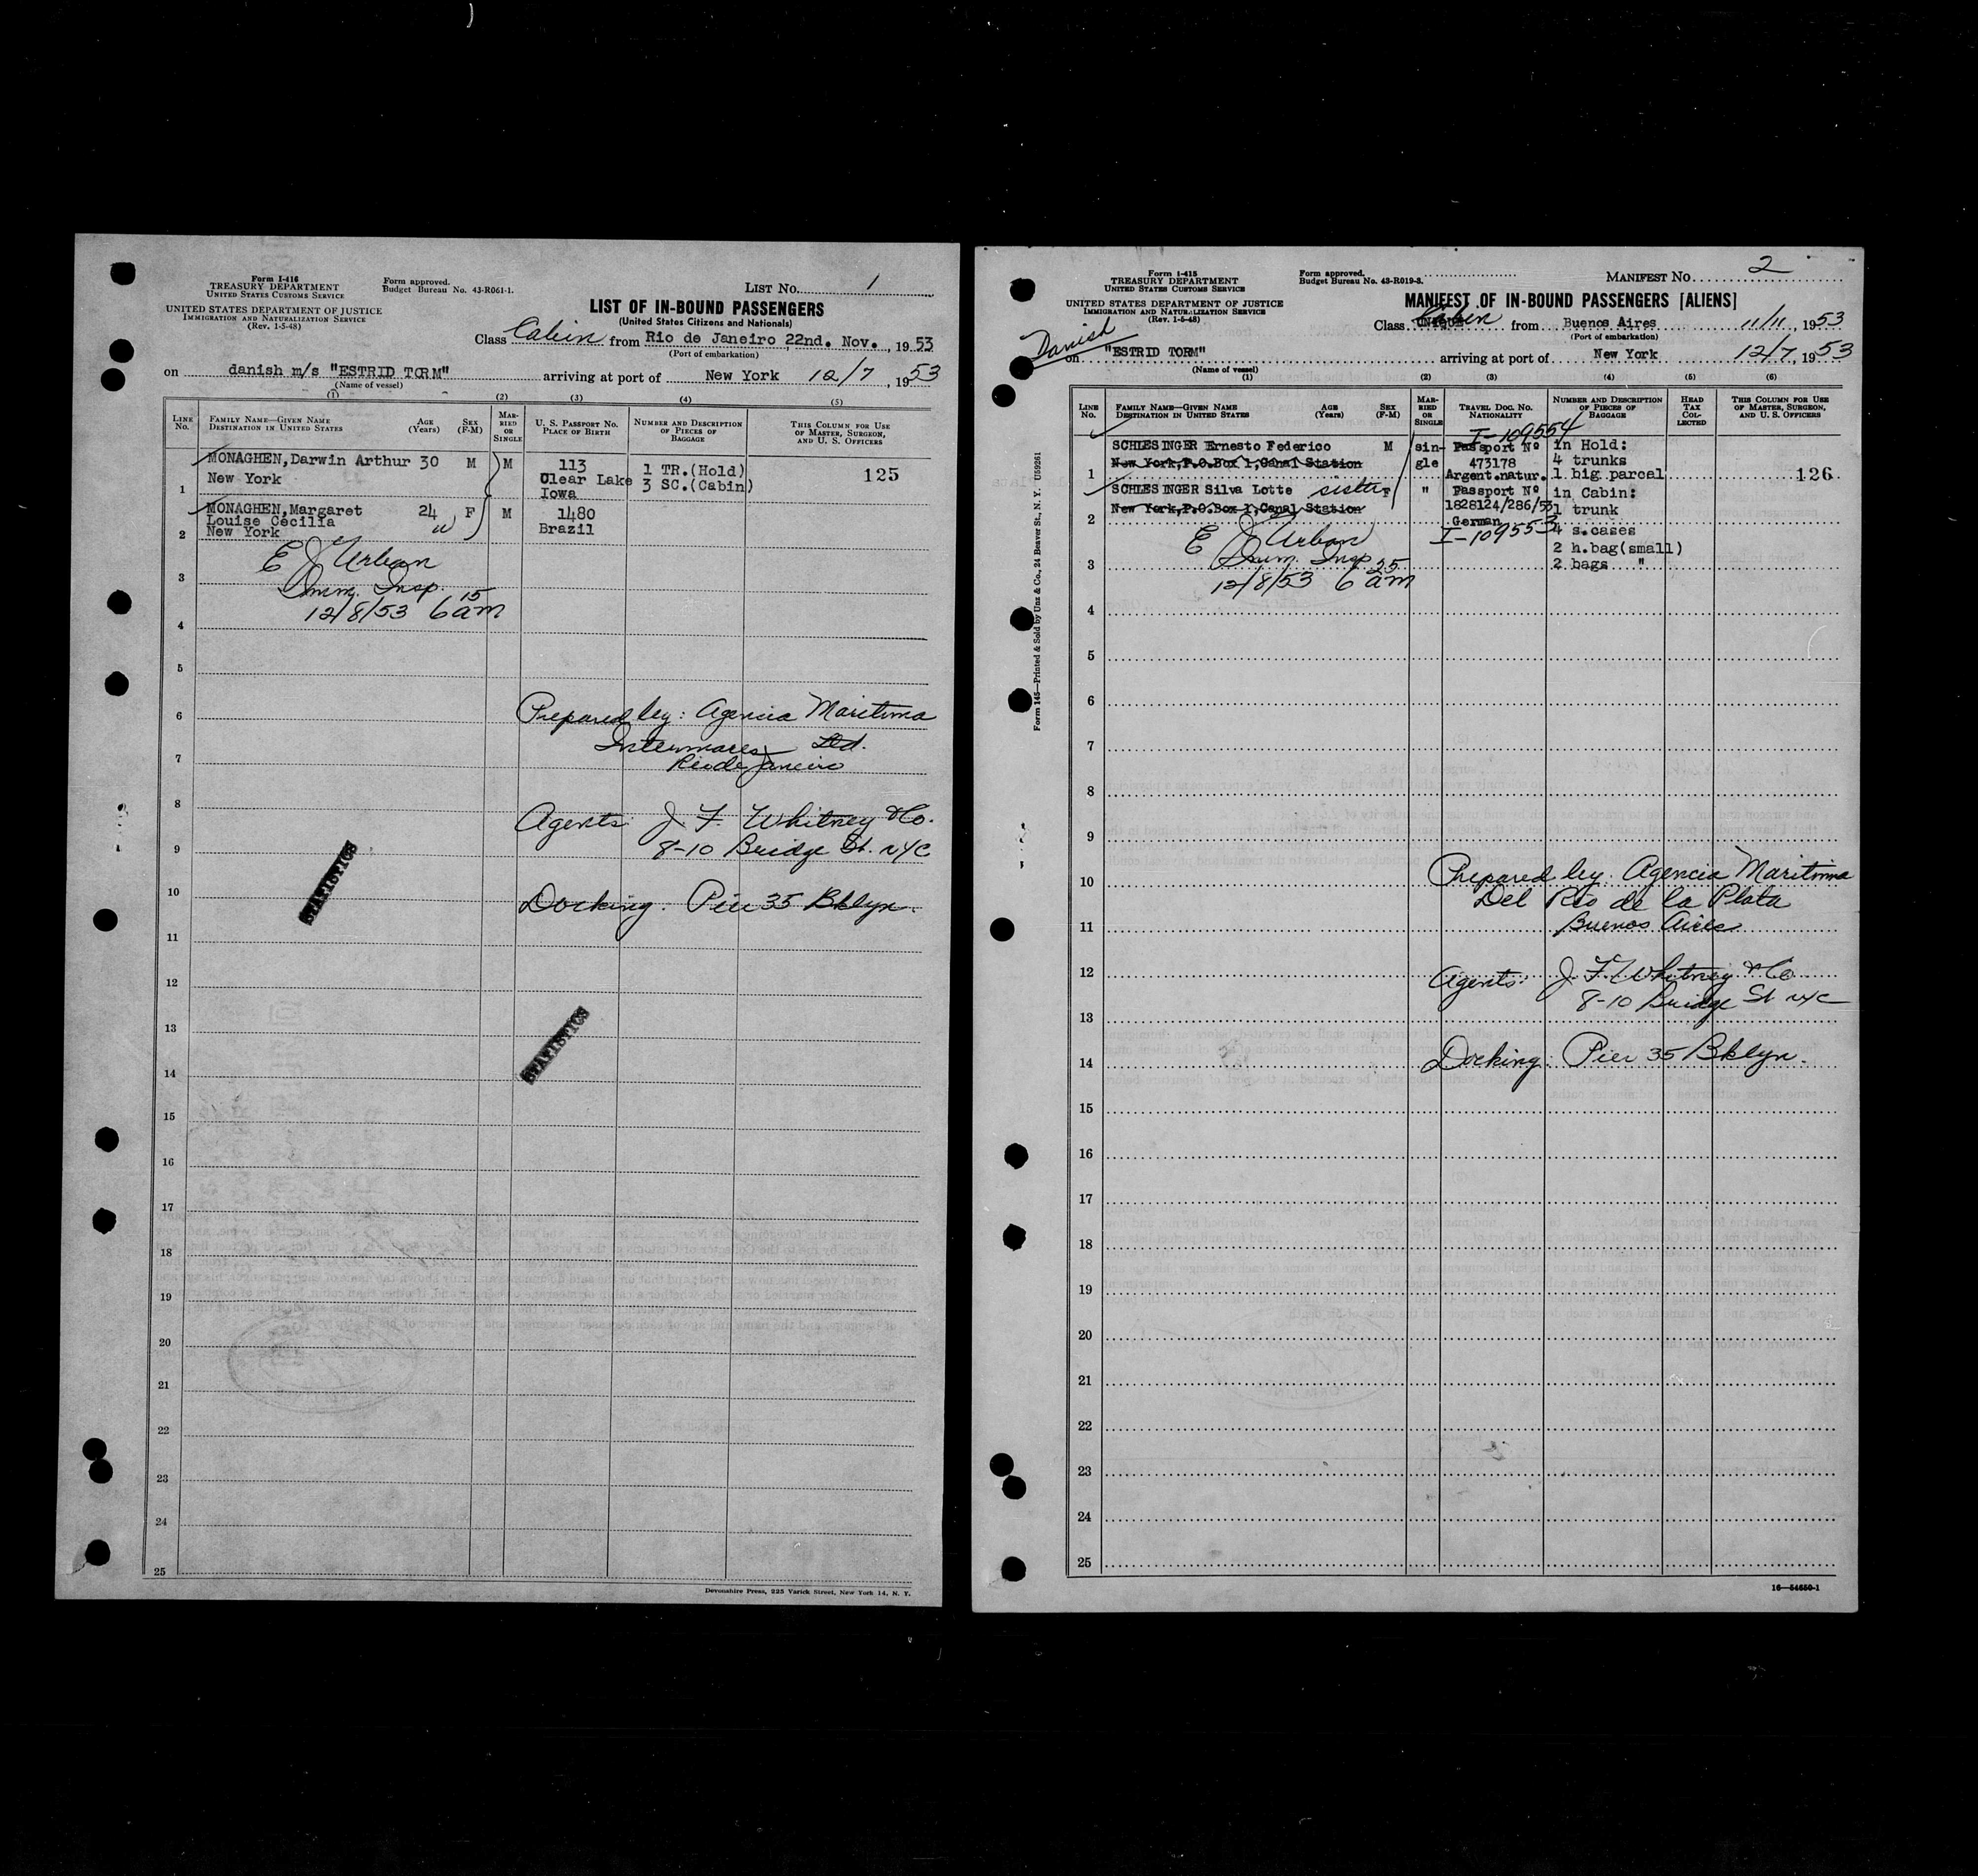 Form I-416
TREASURY DEPARTMENT
UNITED STATES CUSTOMS SERVICE
UNITED STATES DEPARTMENT OF JUSTICE
IMMIGRATION AND NATURALIZATION SERVICE
(Rev. 1-5-48)
Form approved.
Budget Bureau No. 43-R061-1.
LIST No. 1
LIST OF IN-BOUND PASSENGERS
(United States Citizens and Nationals)
Class Cabin from Rio de Janeiro, 22nd. Nov., 1953
(Port of embarkation)
on danish m/s "ESTRID TORM" arriving at port of New York 12/7, 1953
(Name of vessel)
(1) (2) (3) (4) (5)
LINE No.
FAMILY NAME—GIVEN NAME
DESTINATION IN UNITED STATES
AGE (Years)
SEX (F-M)
MARRIED OR SINGLE
U. S. PASSPORT No.
PLACE OF BIRTH
NUMBER AND DESCRIPTION OF PIECES OF BAGGAGE
THIS COLUMN FOR USE OF MASTER, SURGEON, AND U. S. OFFICERS
MONAGHEN, Darwin Arthur 30 M M 113 1 TR.(Hold) 125
1 New York Clear Lake 3 SC.(Cabin)
Iowa
MONAGHEN, Margaret 24 F M 1480
Louise Cecilia Brazil
2 New York
E J Urban
3 Imm. Insp.
12/8/53 6 15 am
4
5
6 Prepared by: Agencia Maritima
Intermares Ltd.
7 Rio de Janeiro
8 Agents: J. F. Whitney & Co.
9 8-10 Bridge St. NYC
STATISTICS
10 Docking: Pier 35 Bklyn.
11
12
13
STATISTICS
14
15
16
17
18
19
20
21
22
23
24
25
Devonshire Press, 225 Varick Street, New York 14, N. Y.
Form I-415
TREASURY DEPARTMENT
UNITED STATES CUSTOMS SERVICE
UNITED STATES DEPARTMENT OF JUSTICE
IMMIGRATION AND NATURALIZATION SERVICE
(Rev. 1-5-48)
Form approved.
Budget Bureau No. 43-R019-3.
MANIFEST No. 2
MANIFEST OF IN-BOUND PASSENGERS [ALIENS]
Class Cabin from Buenos Aires 11/11, 1953
(Port of embarkation)
Danish
on "ESTRID TORM" arriving at port of New York 12/7, 1953
(Name of vessel)
(1) (2) (3) (4) (5) (6)
LINE No.
FAMILY NAME—GIVEN NAME
DESTINATION IN UNITED STATES
AGE (Years)
SEX (F-M)
MARRIED OR SINGLE
TRAVEL DOC. No.
NATIONALITY
NUMBER AND DESCRIPTION OF PIECES OF BAGGAGE
HEAD TAX COLLECTED
THIS COLUMN FOR USE OF MASTER, SURGEON, AND U. S. OFFICERS
I-109554
SCHLESINGER Ernesto Federico M sin- Passport Nº in Hold:
New York, P.O.Box 1, Canal Station gle 473178 4 trunks
1 Argent.natur. 1 big parcel 126
SCHLESINGER Silva Lotte sister F " Passport Nº in Cabin:
New York, P.O.Box 1, Canal Station 1828124/286/53 1 trunk
2 German 4 s.cases
I-109553
E J Urban 2 h.bag(small)
3 Imm. Insp. 2 bags "
12/8/53 6 25 am
4
5
6
7
8
9
10 Prepared by: Agencia Maritima
Del Rio de la Plata
11 Buenos Aires
12 Agents: J. F. Whitney & Co
8-10 Bridge St NYC
13
14 Docking: Pier 35 Bklyn.
15
16
17
18
19
20
21
22
23
24
25
16—54650-1
Form 145—Printed & Sold by Unz & Co., 24 Beaver St., N. Y. U59261